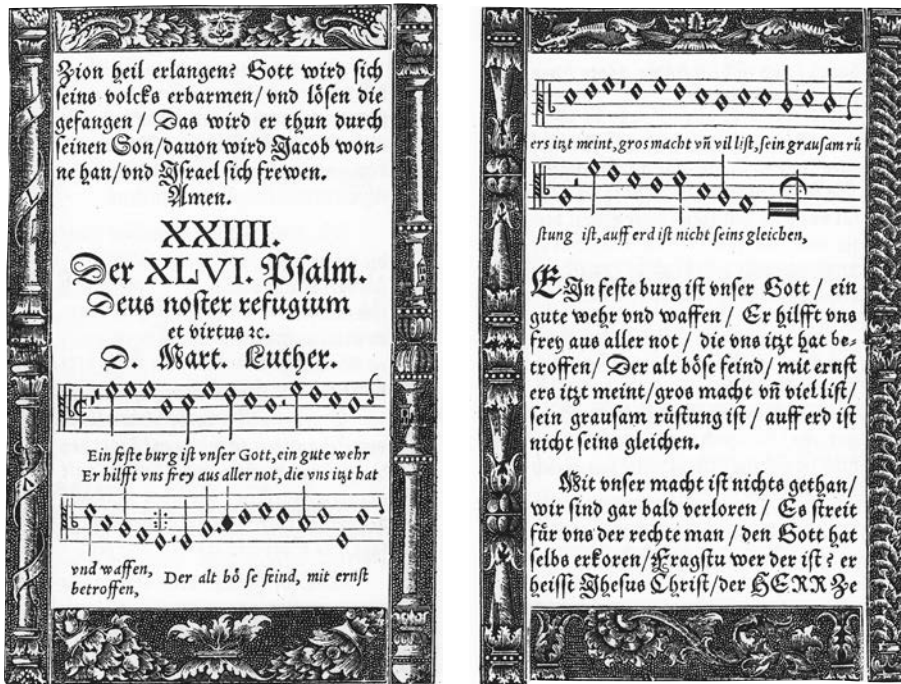 Zion heil erlangen? Gott wird sich
seins volcks erbarmen/ vnd lösen die
gefangen/ Das wird er thun durch
seinen Son/dauon wird Jacob won-
ne han/vnd Israel sich frewen.
Amen.
XXIIII.
Der XLVI. Psalm.
Deus noster refugium
et virtus ꝛc.
D. Mart. Luther.
Ein feste burg ist vnser Gott,ein gute wehr
Er hilfft vns frey aus aller not,die vns itzt hat
vnd waffen, Der alt bö se feind, mit ernst
betroffen,
ers itzt meint,gros macht vñ vil list,sein grausam rü
stung ist,auff erd ist nicht seins gleichen,
EJn feste burg ist vnser Gott / ein
gute wehr vnd waffen / Er hilfft vns
frey aus aller not / die vns itzt hat be-
troffen/ Der alt böse feind/ mit ernst
ers itzt meint/gros macht vñ viel list/
sein grausam rüstung ist / auff erd ist
nicht seins gleichen.
Mit vnser macht ist nichts gethan/
wir sind gar bald verloren / Es streit
für vns der rechte man / den Gott hat
selbs erkoren/Fragstu wer der ist? er
heisst Jhesus Christ/der HERR Ze